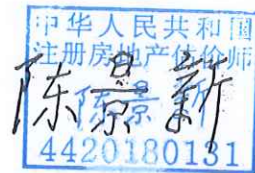 中华人民共和国
注册房地产估价师
陈景新
陈景新
4420180131